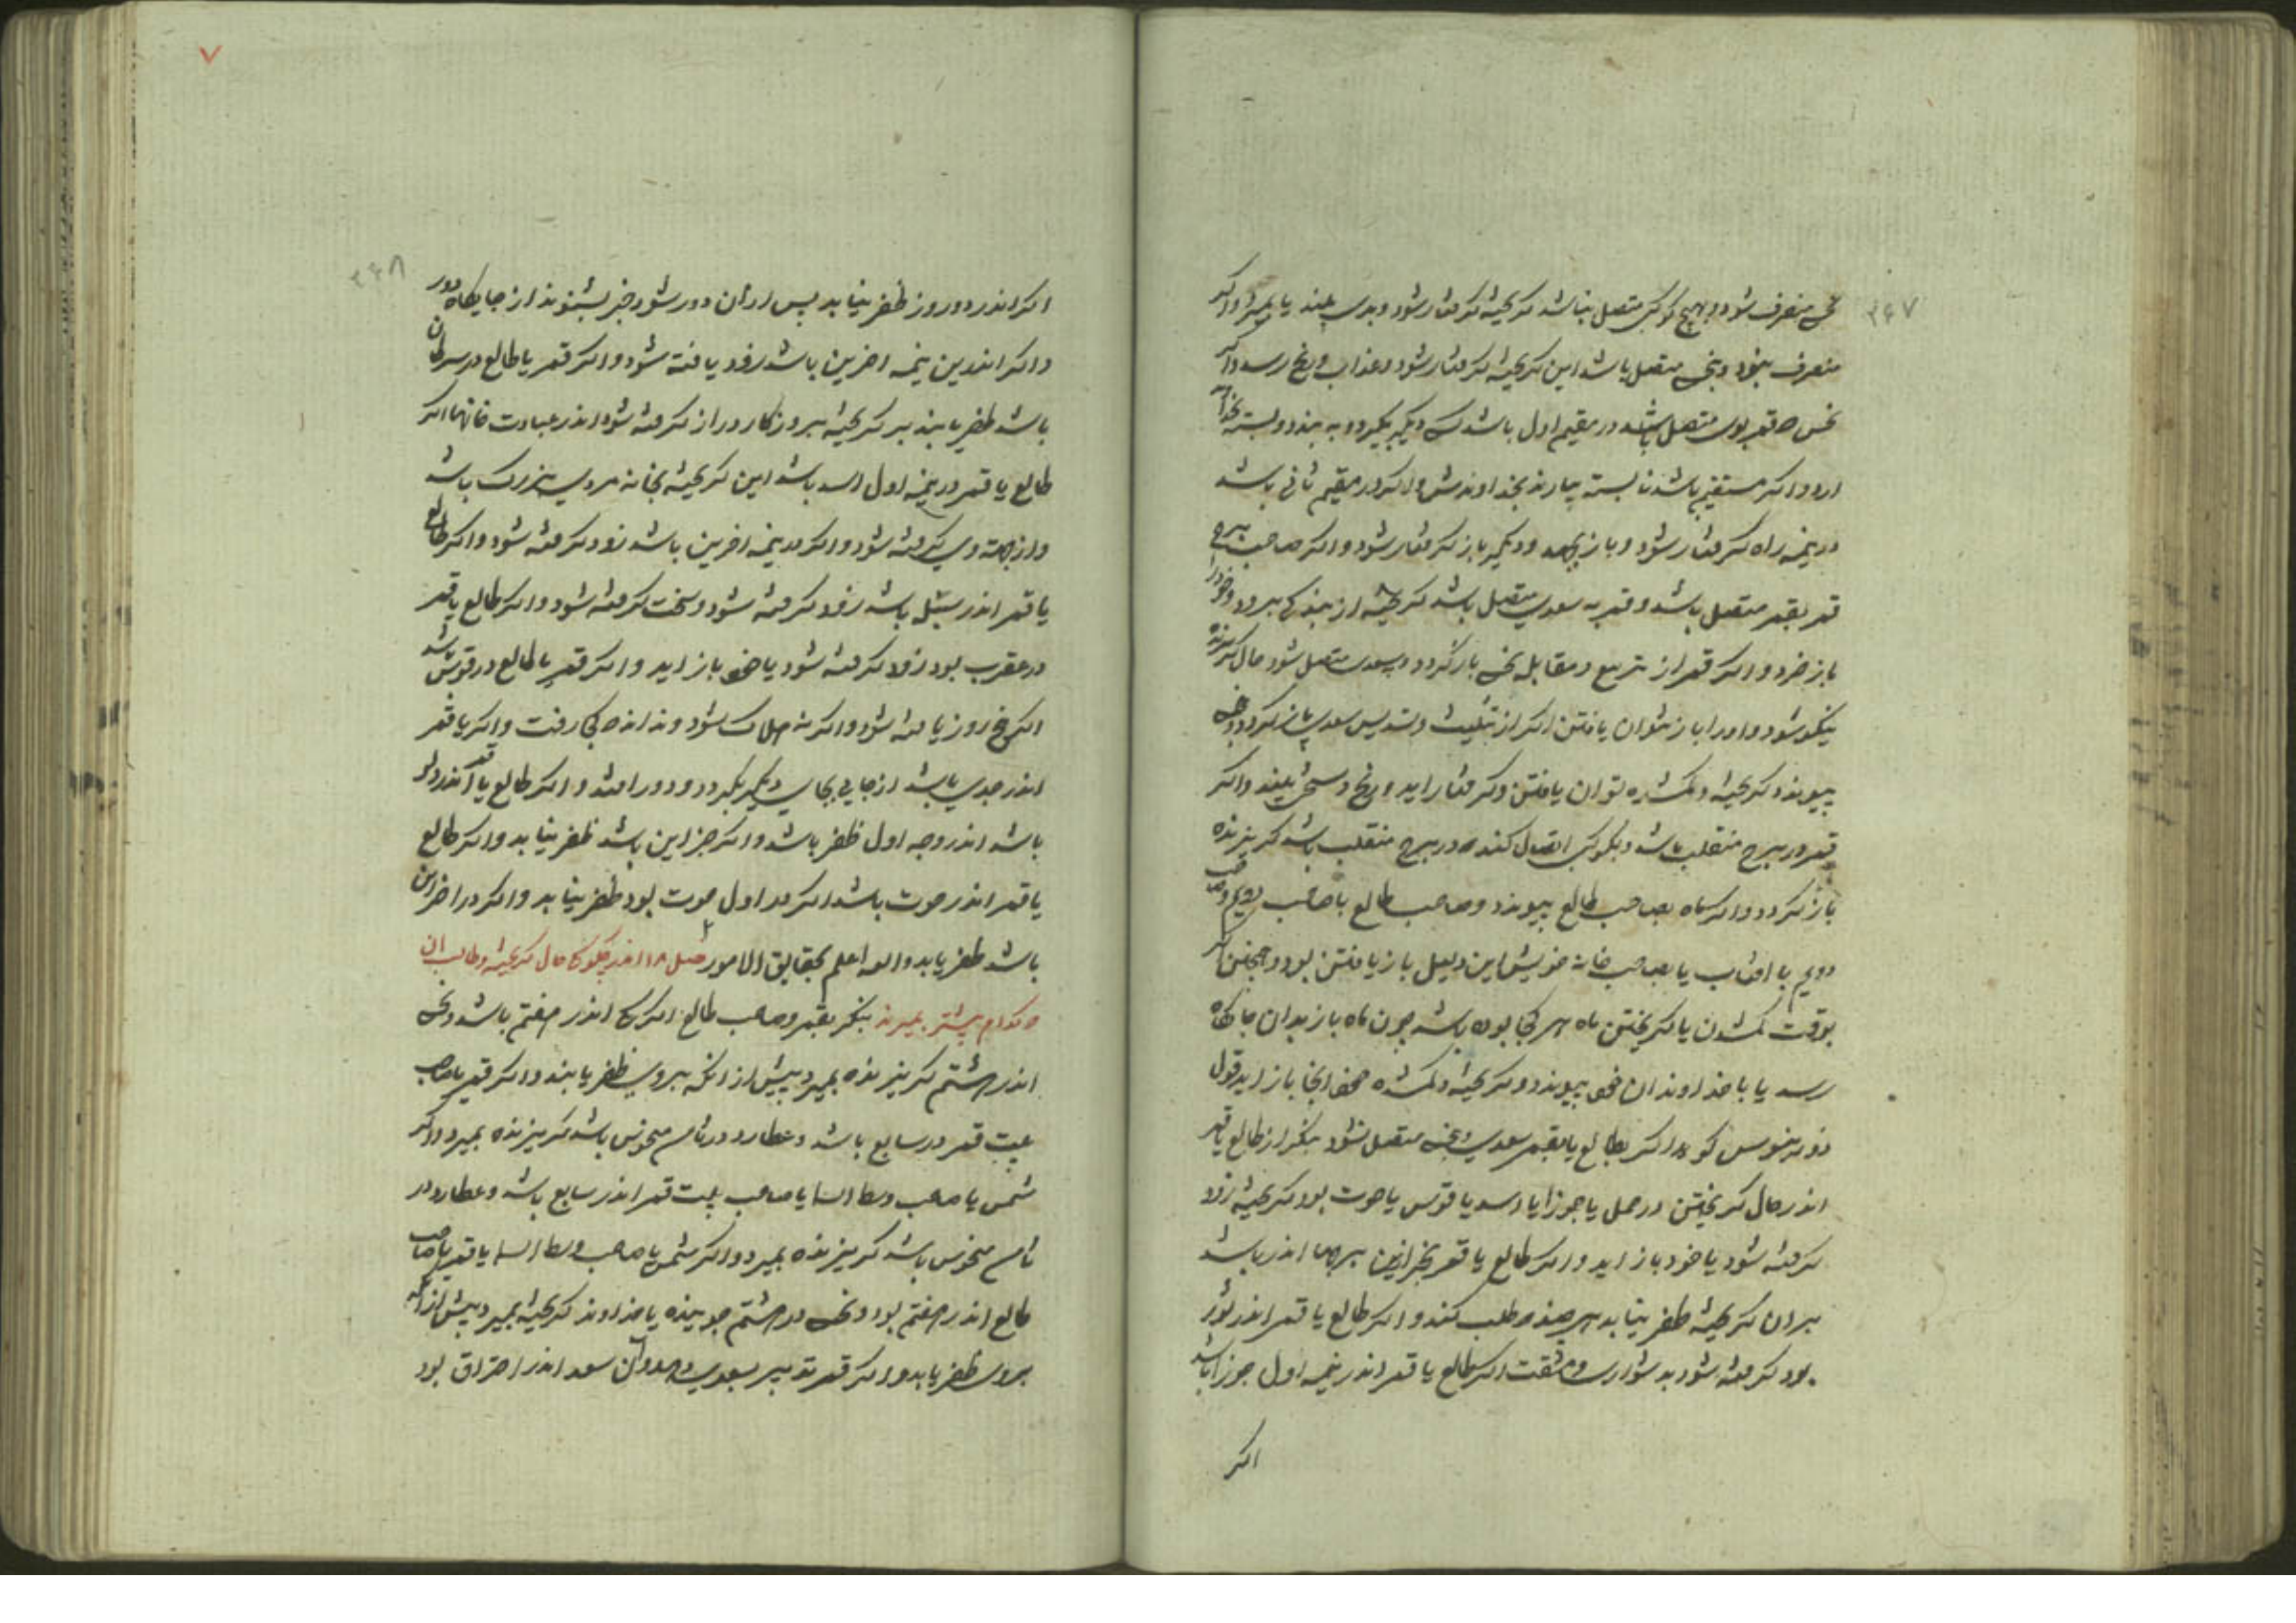 ۳۴۷
منصرف شود و بهیچ کوکبی متصل نباشد کریخته کرفتار شود و بدی بیند یا بمیرد و اکر
منصرف بود و بنحس متصل باشد این کریخته کرفتار شود و عذاب و رنج رسد و اکر
نحس که قمر بوی متصل باشد در مقیم اول باشد کسی دیکر بکیرد و به بندد و بسته بخداوند
ارد و اکر مستقیم باشد نابسته بیارند بخداوندش و اکر در مقیم ثانی باشد
در نیمه راه کرفتار شود و باز بجهد و دیکر باز کرفتار شود و اکر صاحب برج
قمر بقمر متصل باشد و قمر به سعدی متصل باشد کریخته از بندکی برود و خود را
باز خرد و اکر قمر از تربیع و مقابله نحس باز کردد و بسعدی متصل شود حال کریزنده
نیکو شود و او را باز نتوان یافتن اکر از تثلیث و تسدیس سعدی باز کردد و بنحس
پیوندد کریخته و کمشده توان یافتن و کرفتار اید و رنج و سختی بیند و اکر
قمر در برج منقلب باشد و بکوکبی اتصال کند که در برج منقلب باشد کریزنده
باز کردد و اکر ماه بصاحب طالع پیوندد و صاحب طالع با صاحب دویم و صاحب
دویم با افتاب یا بصاحب خانه خویش این دلیل باز یافتن بود و همچنین
بوقت کمشدن یا کریختن ماه هر کجا بوده باشد چون ماه باز بدان جایکاه
رسد یا با خداوند ان پیوندد کریخته و کمشده انجا باز اید قول
ذورنیوس کوید اکر بطالع یا بقمر سعدی و نحسی متصل نشود بنکر از طالع یا قمر
اندر حال کریختن در حمل یا جوزا یا اسد یا قوس یا حوت بود کریخته زود
کرفته شود یا خود باز اید و اکر طالع یا قمر بجز ازین برجها اندر باشد
بر ان کریخته ظفر نیابد هر چند طلب کنند و اکر طالع یا قمر اندر ثور
بود کرفته شود بدشواری و مشقت اکر طالع یا قمر اندر نیمه اول جوزا باشد
اکر
۷
۳۴۸
اکر اندر دو روز ظفر نیابد پس از ان دور شود خبر بشنوند از جایکاه دور
و اکر اندرین نیمه اخرین باشد زود یافته شود و اکر قمر یا طالع در سرطان
باشد ظفر یابند بر کریخته بروزکار دراز کرفته شود اندر عبادت خانها اکر
طالع یا قمر در نیمه اول اسد باشد این کریخته بخانه مردی بزرک باشد
و از جهت وی کرفته شود و اکر در نیمه اخرین باشد زود کرفته شود و اکر طالع
یا قمر اندر سنبله باشد زود کرفته شود و سخت کرفته شود و اکر طالع یا قمر
در عقرب بود زود کرفته شود یا خود باز اید و اکر قمر یا طالع در قوس باشد
روز یافته شود و اکر نه هلاک شود و ندانند که کجا رفت و اکر یا قمر
اندر جدی باشد از جایی بجای دیکر بکردد و دور افتد و اکر طالع یا قمر اندر دلو
باشد اندر وجه اول ظفر باشد و اکر جز این باشد ظفر نیابد و اکر طالع
یا قمر اندر حوت باشد اکر در اول حوت بود ظفر نیابد و اکر در اخر این
باشد ظفر یابد و الله اعلم بحقایق الامور فصل ۱۸ اندر چکونکی حال کریخته و طالب ان
که کدام پیشتر بمیرند بنکر بقمر و صاحب طالع اکر اندر هفتم باشد و نحس
اندر هشتم کریزنده بمیرد پیش از انکه بروی ظفر یابند و اکر قمر یا صاحب
بیت قمر در سابع باشد و عطارد در ثامن منحوس باشد کریزنده بمیرد و اکر
شمس یا صاحب وسط السما یا صاحب بیت قمر اندر سابع باشد و عطارد در
ثامن منحوس باشد کریزنده بمیرد و اکر شمس یا صاحب وسط السما یا قمر یا صاحب
طالع اندر هفتم بود و نحس در هشتم جوینده یا خداوند کریخته بمیرد پیش از انکه
بروی ظفر یابد و اکر قمر تدبیر بسعدی دهد و ان سعد اندر احتراق بود